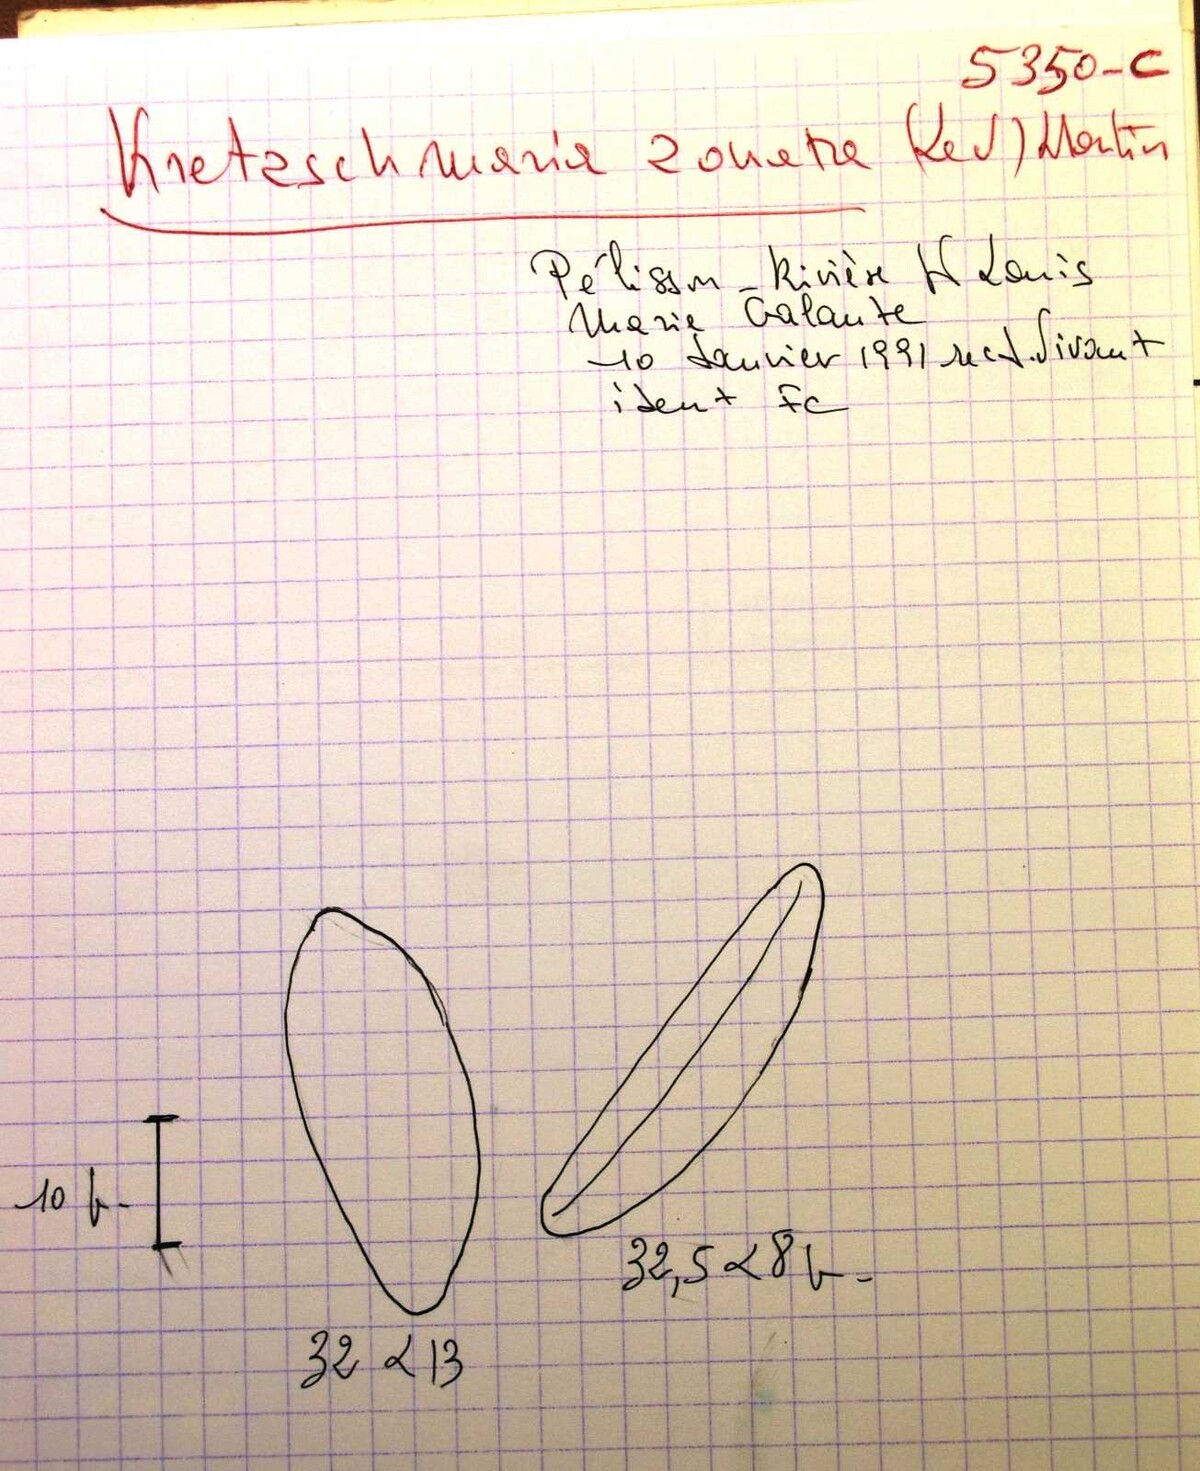 5350-C
Kretzschmaria zonata (Lev) Martin
Pélisson - Rivière St Louis
Marie Galante
10 Janvier 1991 Vivant
ident FC
10 µ.
32,5 x 8 µ.
32 x 13